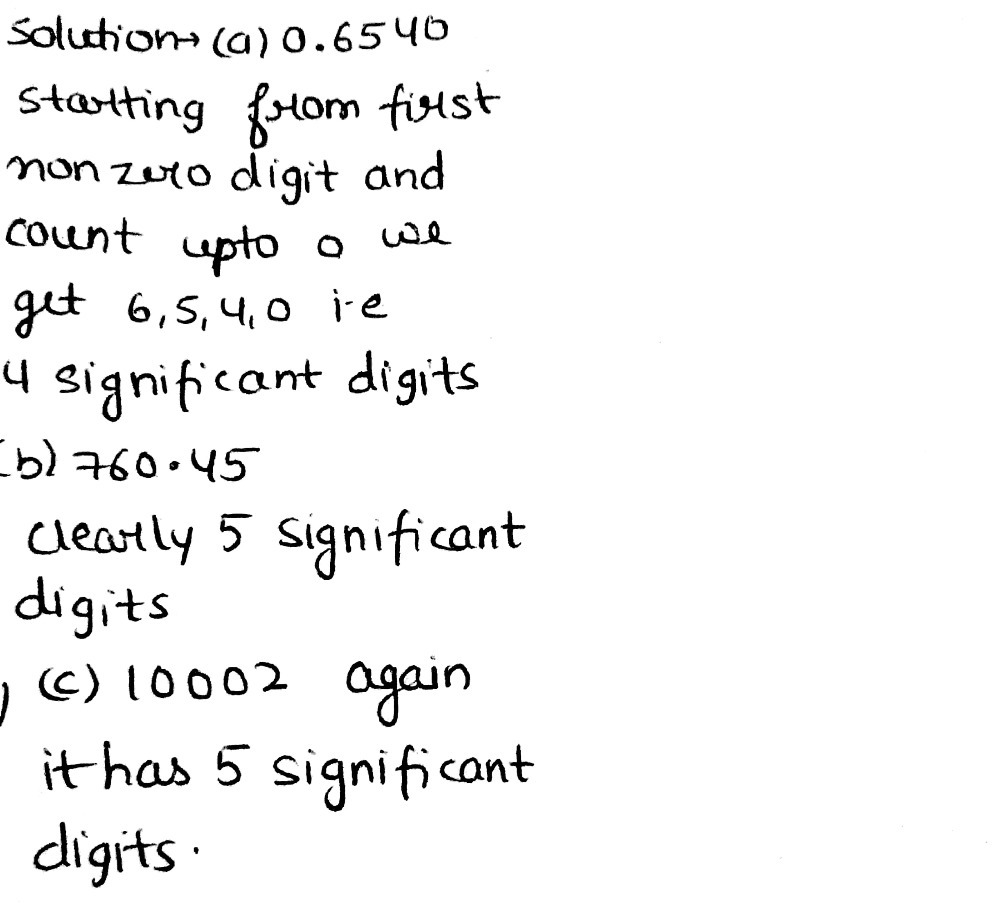 Solution→ (a) 0.6540
starting from first
non zero digit and
count upto 0 we
get 6,5,4,0 i-e
4 significant digits
(b) 760.45
clearly 5 significant
digits
, (c) 10002 again
it has 5 significant
digits.